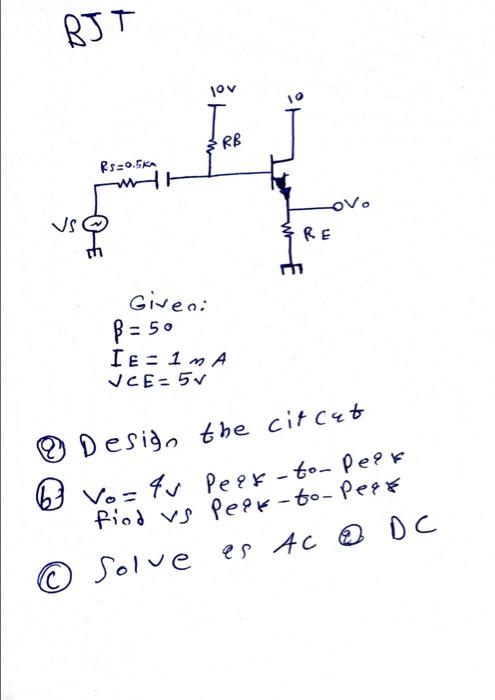 BJT
10V
10
RB
Rs=0.5KΩ
Vs
oVo
RE
Given:
β = 50
IE = 1 mA
VCE = 5V
ⓐ Design the circut
ⓑ Vo = 4V Peak-to-Peak
find vs Peak-to-Peak
ⓒ Solve as AC & DC